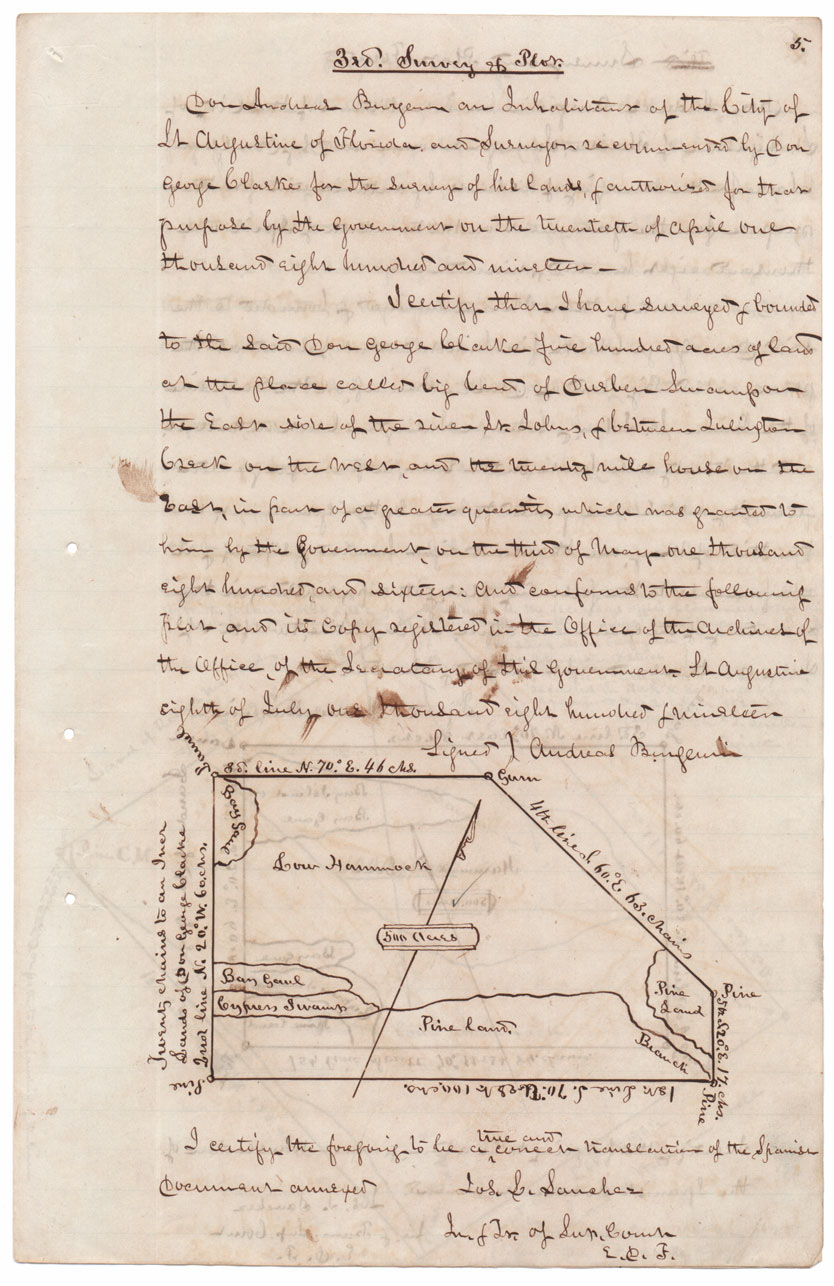 5.
3rd. Survey of Plot.
Don Andreas Burgevin an Inhabitant of the City of
St Augustine of Florida, and Surveyor recommended by Don
George Clarke for the survey of his lands, & authorized for that
purpose by the Government on the twentieth of April one
thousand eight hundred and nineteen —
I certify that I have surveyed & bounded
to the said Don George Clarke five hundred acres of land
at the place called big bend of Durben Swamp on
the East side of the river St. Johns, & between Julington
Creek on the West, and the twenty mile house on the
East, in part of a greater quantity which was granted to
him by the Government, on the third of May one thousand
eight hundred, and sixteen: and conforms to the following
Plat, and its Copy registered in the Office of the Archives of
the Office, of the Secratary of this Government. St Augustine
eighth of July one thousand eight hundred & nineteen
Signed ) Andreas Burgevin
3d. line N. 70° E. 46 chs.
Gum
4th line S. 60° E. 63. chains
Bay Gaul
Low Hammock
500 Acres
Twenty chains to an Iner
Lands of Don George Clarke
2nd line N. 20° W. 60 chs.
Bay Gaul
Cypress Swamp
Pine land.
Pine Land
Branch
Pine
5th S 20° E. 17. chs.
Pine
Pine
1st. Line S. 70° West 100 chs.
I certify the foregoing to be a true and correct translation of the Spanish
Document annexed
Jos. S. Sanchez
In. & Tr. of Sup. Court
E. D. F.